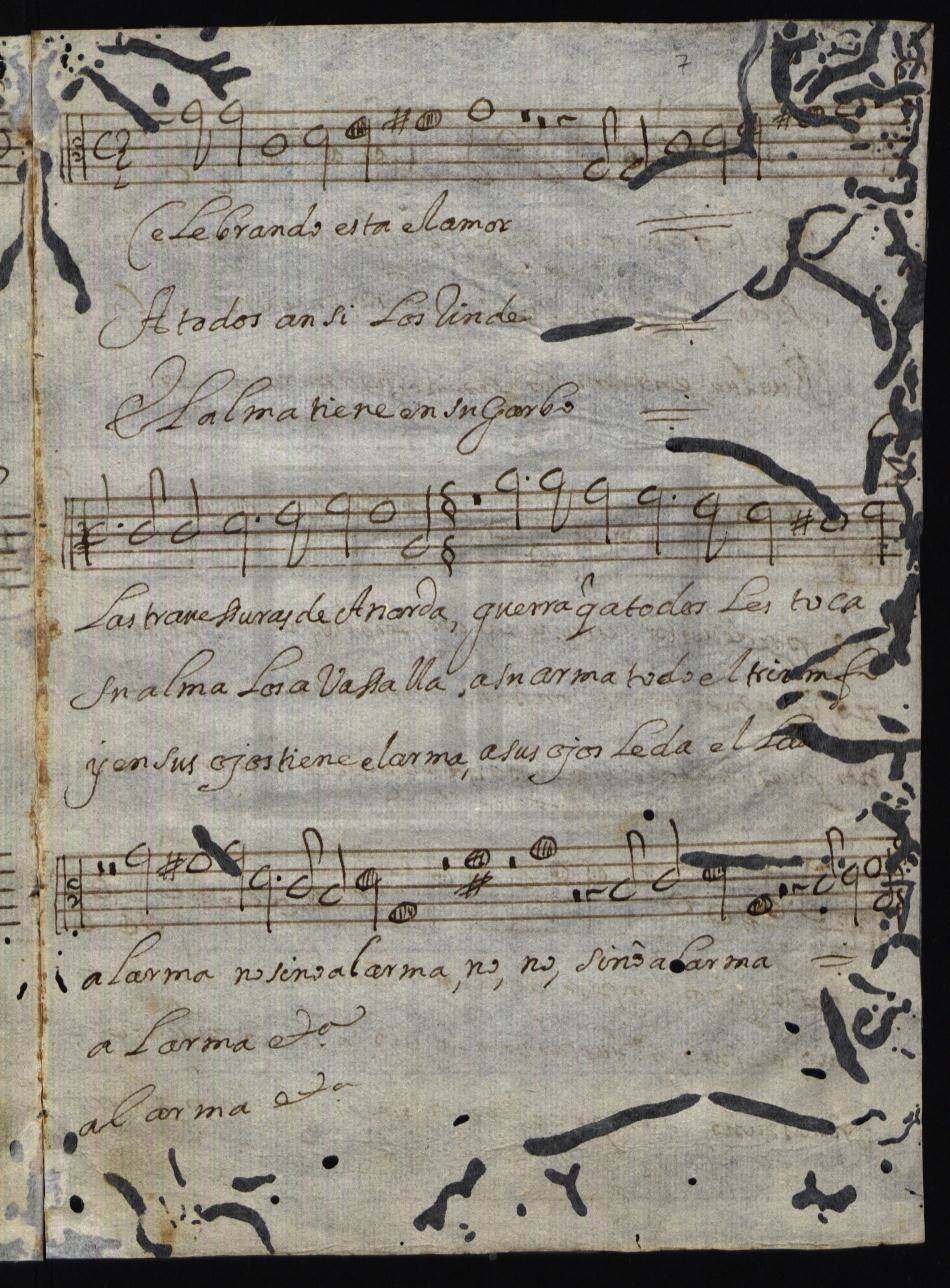 7
Celebrando esta el amor
A todos ansi los Rinde
El alma tiene en su Garbo
Las travessuras de Anarda, guerra q̂ a todos les toca
su alma los avasalla, a su arma todo el triumfo
y en sus ojos tiene el arma, a sus ojos le da el
al arma no sino al arma, no, no, sino al arma
al arma &a
al arma &a